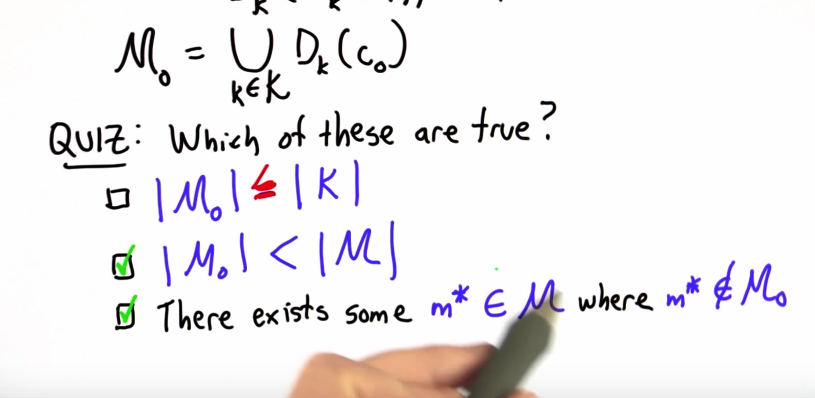 M₀ = ⋃ Dₖ(c₀)
k∈K
QUIZ: Which of these are true?
|M₀| ≤ |K|
|M₀| < |M|
There exists some m* ∈ M where m* ∉ M₀